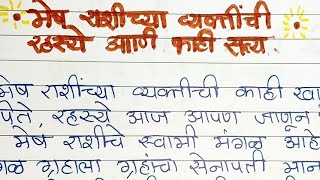 मेष राशीच्या व्यक्तींची
रहस्ये आणि काही सत्य.
मेष राशींच्या व्यक्तीची काही
पिते, रहस्ये आज आपण जाणून
मेष राशीचे स्वामी मंगळ आहे
ग्रहाला ग्रहांचा सेनापती मान